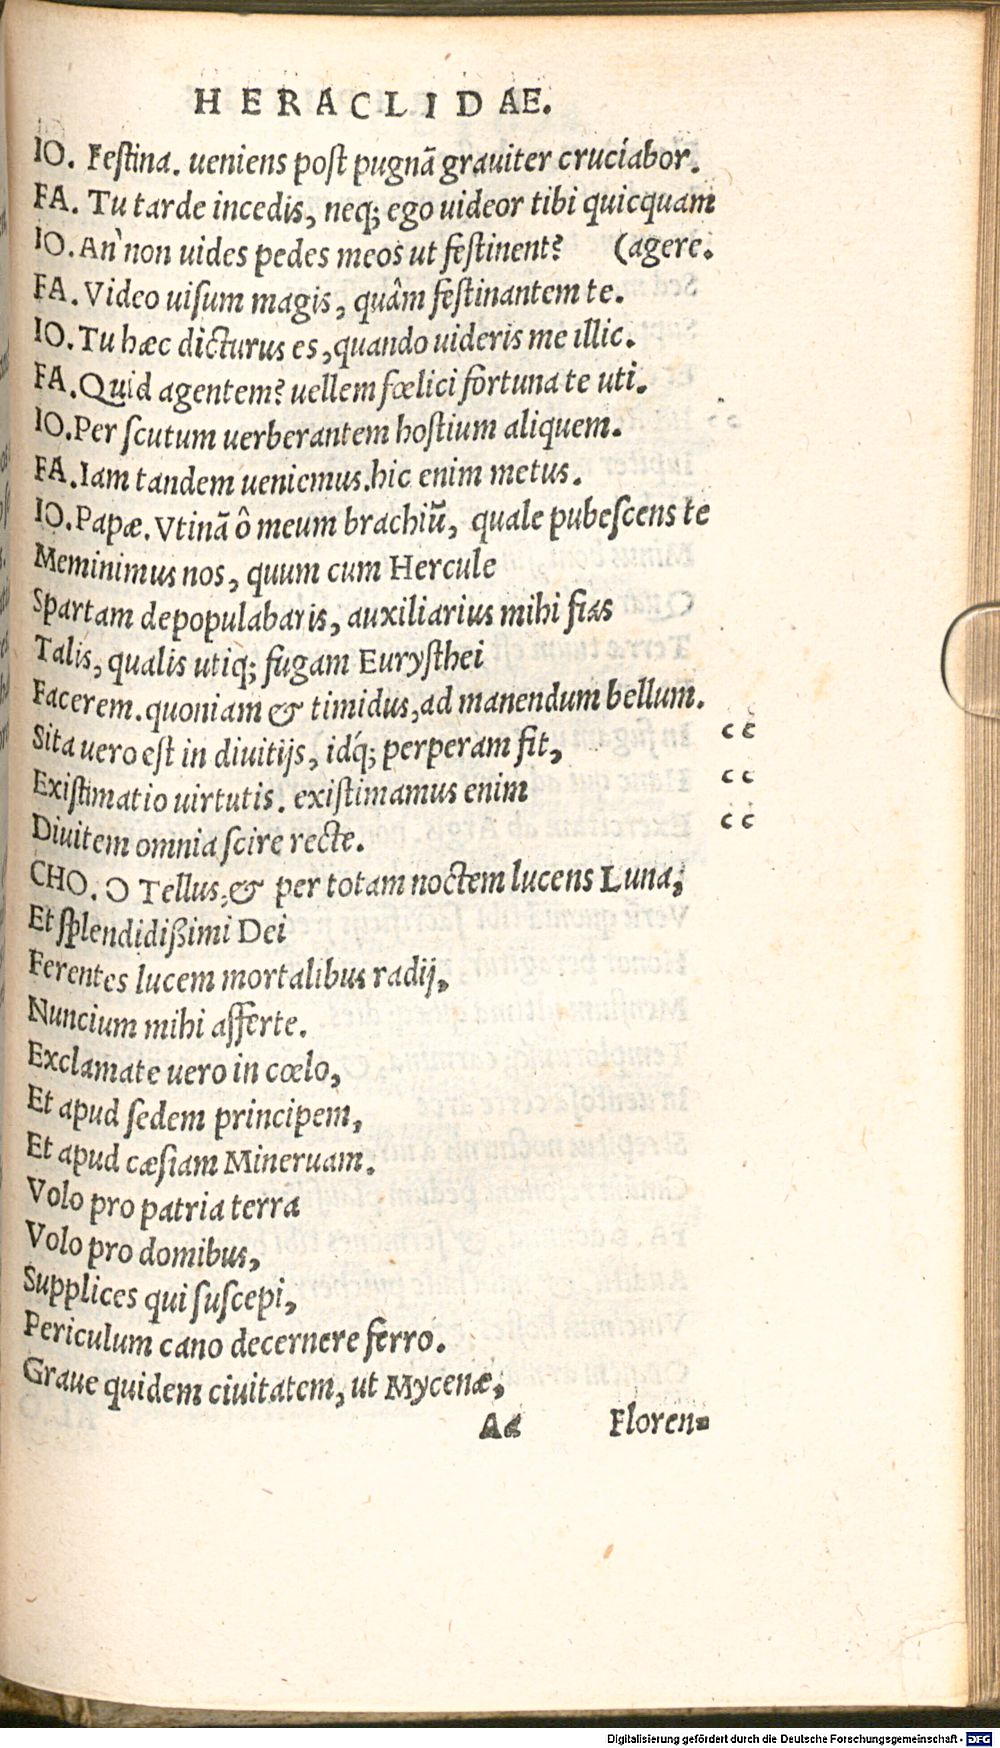 HERACLIDAE.
IO. Festina. ueniens post pugnã grauiter cruciabor.
FA. Tu tarde incedis, neq; ego uideor tibi quicquam
IO. An'non uides pedes meos ut festinent? (agere.
FA. Video uisum magis, quâm festinantem te.
IO. Tu hæc dicturus es, quando uideris me illic.
FA. Quid agentem? uellem fœlici fortuna te uti.
IO. Per scutum uerberantem hostium aliquem.
FA. Iam tandem ueniemus. hic enim metus.
IO. Papæ. Vtinã ô meum brachiũ, quale pubescens te
Meminimus nos, quum cum Hercule
Spartam depopulabaris, auxiliarius mihi fias
Talis, qualis utiq; fugam Eurysthei
Facerem. quoniam & timidus, ad manendum bellum.
Sita uero est in diuitijs, idq́; perperam fit, cc
Existimatio uirtutis. existimamus enim cc
Diuitem omnia scire recte. cc
CHO. O Tellus, & per totam noctem lucens Luna,
Et splendidißimi Dei
Ferentes lucem mortalibus radij,
Nuncium mihi afferte.
Exclamate uero in cœlo,
Et apud sedem principem,
Et apud cæsiam Mineruam.
Volo pro patria terra
Volo pro domibus,
Supplices qui suscepi,
Periculum cano decernere ferro.
Graue quidem ciuitatem, ut Mycenæ,
Floren=
Digitalisierung gefördert durch die Deutsche Forschungsgemeinschaft - DFG